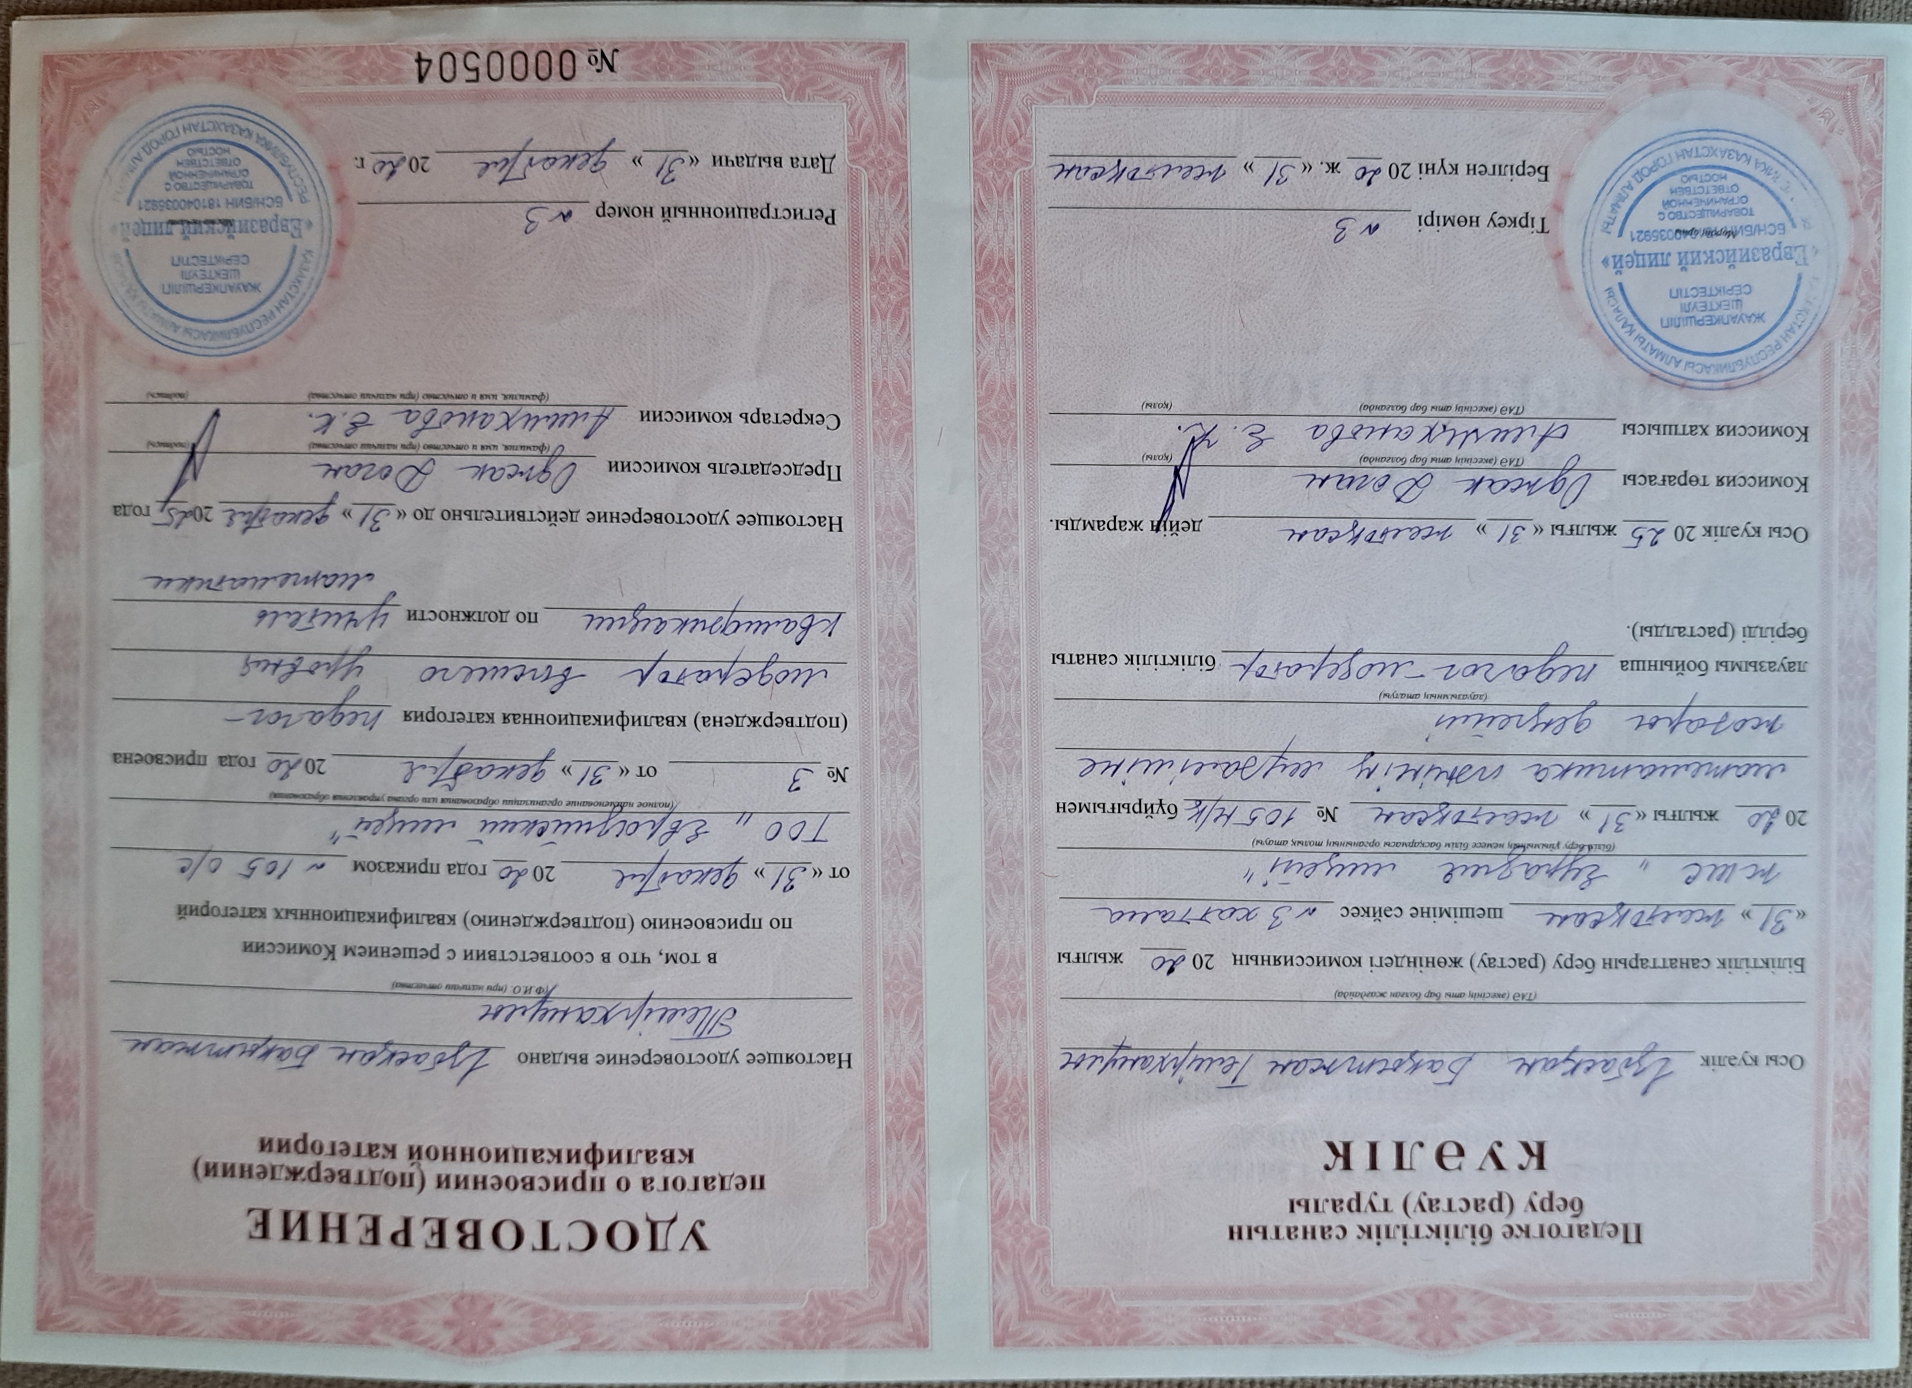 Педагогке біліктілік санатын
беру (растау) туралы
КУӘЛІК
Осы куәлік Ізбасқан Бақытжан Темірханұлы
(ТАӘ (әкесінің аты бар болған жағдайда)
Біліктілік санаттарын беру (растау) жөніндегі комиссияның 2020 жылғы
«31» желтоқсан шешіміне сәйкес №3 хаттама
ЖШС "Еуразия лицейі"
(білім беру ұйымының немесе білім басқармасы органының толық атауы)
2020 жылғы «31» желтоқсан № 105 н/қ бұйрығымен
математика пәнінің мұғаліміне
жоғары деңгейлі
(лауазымының аталуы)
лауазымы бойынша педагог-модератор біліктілік санаты
берілді (расталды).
Осы куәлік 2025 жылғы «31» желтоқсан дейін жарамды.
Комиссия төрағасы Оджак Доган
(ТАӘ (әкесінің аты бар болғанда) (қолы)
Комиссия хатшысы Алимханова Е. К.
(ТАӘ (әкесінің аты бар болғанда) (қолы)
Тіркеу нөмірі №3
Берілген күні 2020 ж. «31» желтоқсан
ҚАЗАҚСТАН РЕСПУБЛИКАСЫ АЛМАТЫ ҚАЛАСЫ
ЖАУАПКЕРШІЛІГІ
ШЕКТЕУЛІ
СЕРІКТЕСТІГІ
«Евразийский лицей»
ТОВАРИЩЕСТВО С
ОГРАНИЧЕННОЙ
ОТВЕТСТВЕН
НОСТЬЮ
УДОСТОВЕРЕНИЕ
педагога о присвоении (подтверждении)
квалификационной категории
Настоящее удостоверение выдано Ізбасқан Бақытжан
Темірханұлы
(Ф.И.О. (при наличии отчества)
в том, что в соответствии с решением Комиссии
по присвоению (подтверждению) квалификационных категорий
от «31» декабря 2020 года приказом №105 о/с
ТОО "Евразийский лицей"
(полное наименование организации образования или органа управления образования)
№ 3 от «31» декабря 2020 года присвоена
(подтверждена) квалификационная категория педагог-
модератор высшего уровня
квалификации по должности учитель
математики
Настоящее удостоверение действительно до «31» декабря 2025 года
Председатель комиссии Оджак Доган
(фамилия, имя и отчество (при наличии отчества) (подпись)
Секретарь комиссии Алимханова Е.К.
(фамилия, имя и отчество (при наличии отчества) (подпись)
Регистрационный номер №3
Дата выдачи «31» декабря 2020 г.
ҚАЗАҚСТАН РЕСПУБЛИКАСЫ АЛМАТЫ ҚАЛАСЫ
ЖАУАПКЕРШІЛІГІ
ШЕКТЕУЛІ
СЕРІКТЕСТІГІ
«Евразийский лицей»
БСН/БИН 181040035921
ТОВАРИЩЕСТВО С
ОГРАНИЧЕННОЙ
ОТВЕТСТВЕН
НОСТЬЮ
РЕСПУБЛИКА КАЗАХСТАН ГОРОД АЛМАТЫ
№ 0000504